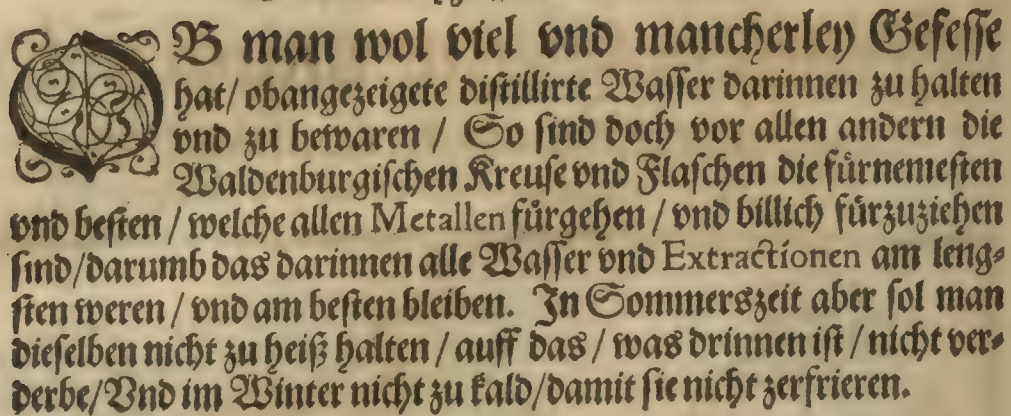 OB man wol viel vnd mancherley Gefesse
hat/ obangezeigete distillirte Wasser darinnen zu halten
vnd zu bewaren / So sind doch vor allen andern die
Waldenburgischen Kreuse vnd Flaschen die fürnemesten
vnd besten / welche allen Metallen fürgehen / vnd billich fürzuziehen
sind/darumb das darinnen alle Wasser vnd Extractionen am leng-
sten weren / vnd am besten bleiben. In Sommerszeit aber sol man
dieselben nicht zu heiß halten / auff das / was drinnen ist / nicht ver-
derbe/Vnd im Winter nicht zu kald/damit sie nicht zerfrieren.